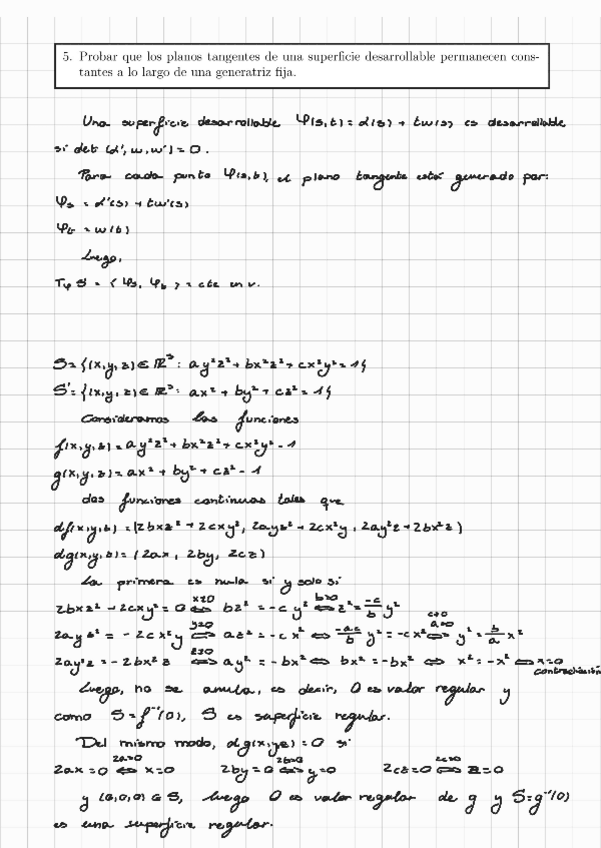 5. Probar que los planos tangentes de una superficie desarrollable permanecen cons-
tantes a lo largo de una generatriz fija.
Una superficie desarrollable Ψ(s,t) = α(s) + tw(s) es desarrollable
si det (α', w, w') = 0.
Para cada punto Ψ(s,t), el plano tangente está generado por:
Ψs = α'(s) + tw'(s)
Ψt = w(t)
Luego,
TΨ S = < Ψs, Ψt > = cte en v.
S = {(x,y,z) ∈ ℝ³ : ay²z² + bx²z² + cx²y² = 1}
S' = {(x,y,z) ∈ ℝ³ : ax² + by² + cz² = 1}
Consideramos las funciones
f(x,y,z) = ay²z² + bx²z² + cx²y² - 1
g(x,y,z) = ax² + by² + cz² - 1
dos funciones continuas tales que
df(x,y,z) = (2bxz² + 2cxy², 2ayz² + 2cx²y, 2ay²z + 2bx²z)
dg(x,y,z) = (2ax, 2by, 2cz)
La primera es nula si y solo si
2bxz² + 2cxy² = 0 ⇔(x≠0) bz² = -cy² ⇔(b≠0) z² = -c/b y²
2ayz² = -2cx²y ⇔(y≠0) az² = -cx² ⇔ -ac/b y² = -cx² ⇔(c≠0, a≠0) y² = b/a x²
2ay²z = -2bx²z ⇔(z≠0) ay² = -bx² ⇔ bx² = -bx² ⇔ x² = -x² ⇔ x=0
contradicción
Luego, no se anula, es decir, 0 es valor regular y
como S = f⁻¹(0), S es superficie regular.
Del mismo modo, dg(x,y,z) = 0 si
2ax = 0 ⇔(2a≠0) x=0 2by = 0 ⇔(2b≠0) y=0 2cz = 0 ⇔(2c≠0) z=0
y (0,0,0) ∉ S, luego 0 es valor regular de g y S = g⁻¹(0)
es una superficie regular.